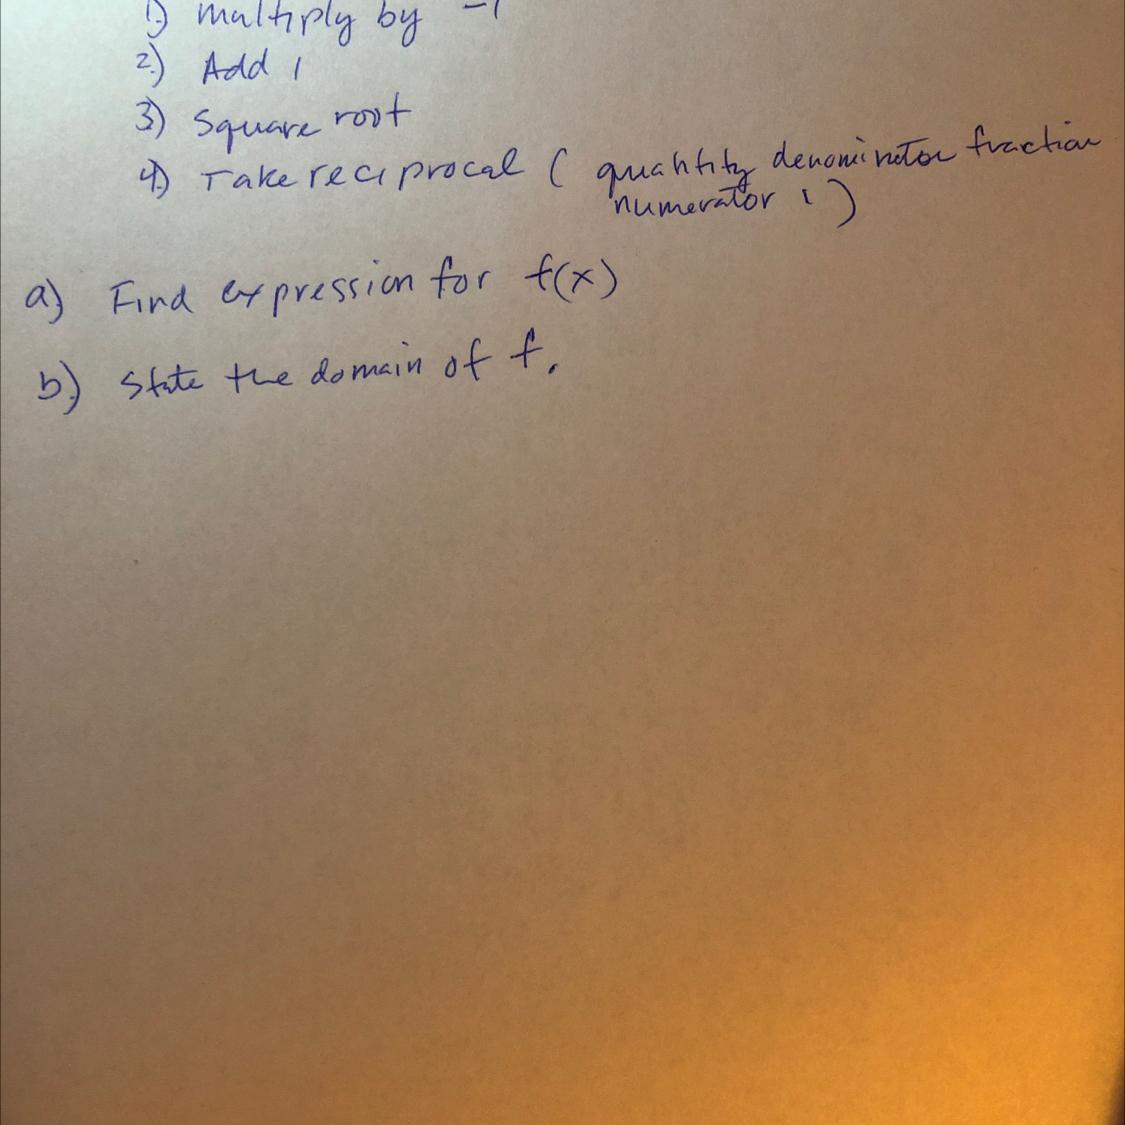 1.) multiply by -1
2.) Add 1
3.) Square root
4.) Take reciprocal ( quantity denominator fraction
numerator 1 )
a) Find expression for f(x)
b) State the domain of f.